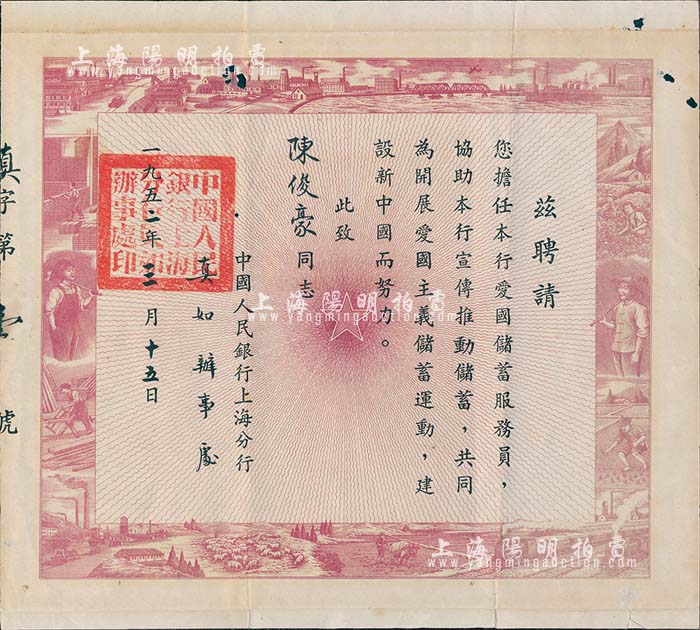 茲聘請
您擔任本行愛國儲蓄服務員，
協助本行宣傳推動儲蓄，共同
為開展愛國主義儲蓄運動，建
設新中國而努力。
此致
陳俊豪同志
中國人民銀行上海分行
真如辦事處
一九五二年三月十五日
中國人民
銀行上海
分行真如
辦事處印
真字第壹號
上海陽明拍賣
www.yangmingauction.com
上海陽明拍賣
www.yangmingauction.com
上海陽明拍賣
www.yangmingauction.com